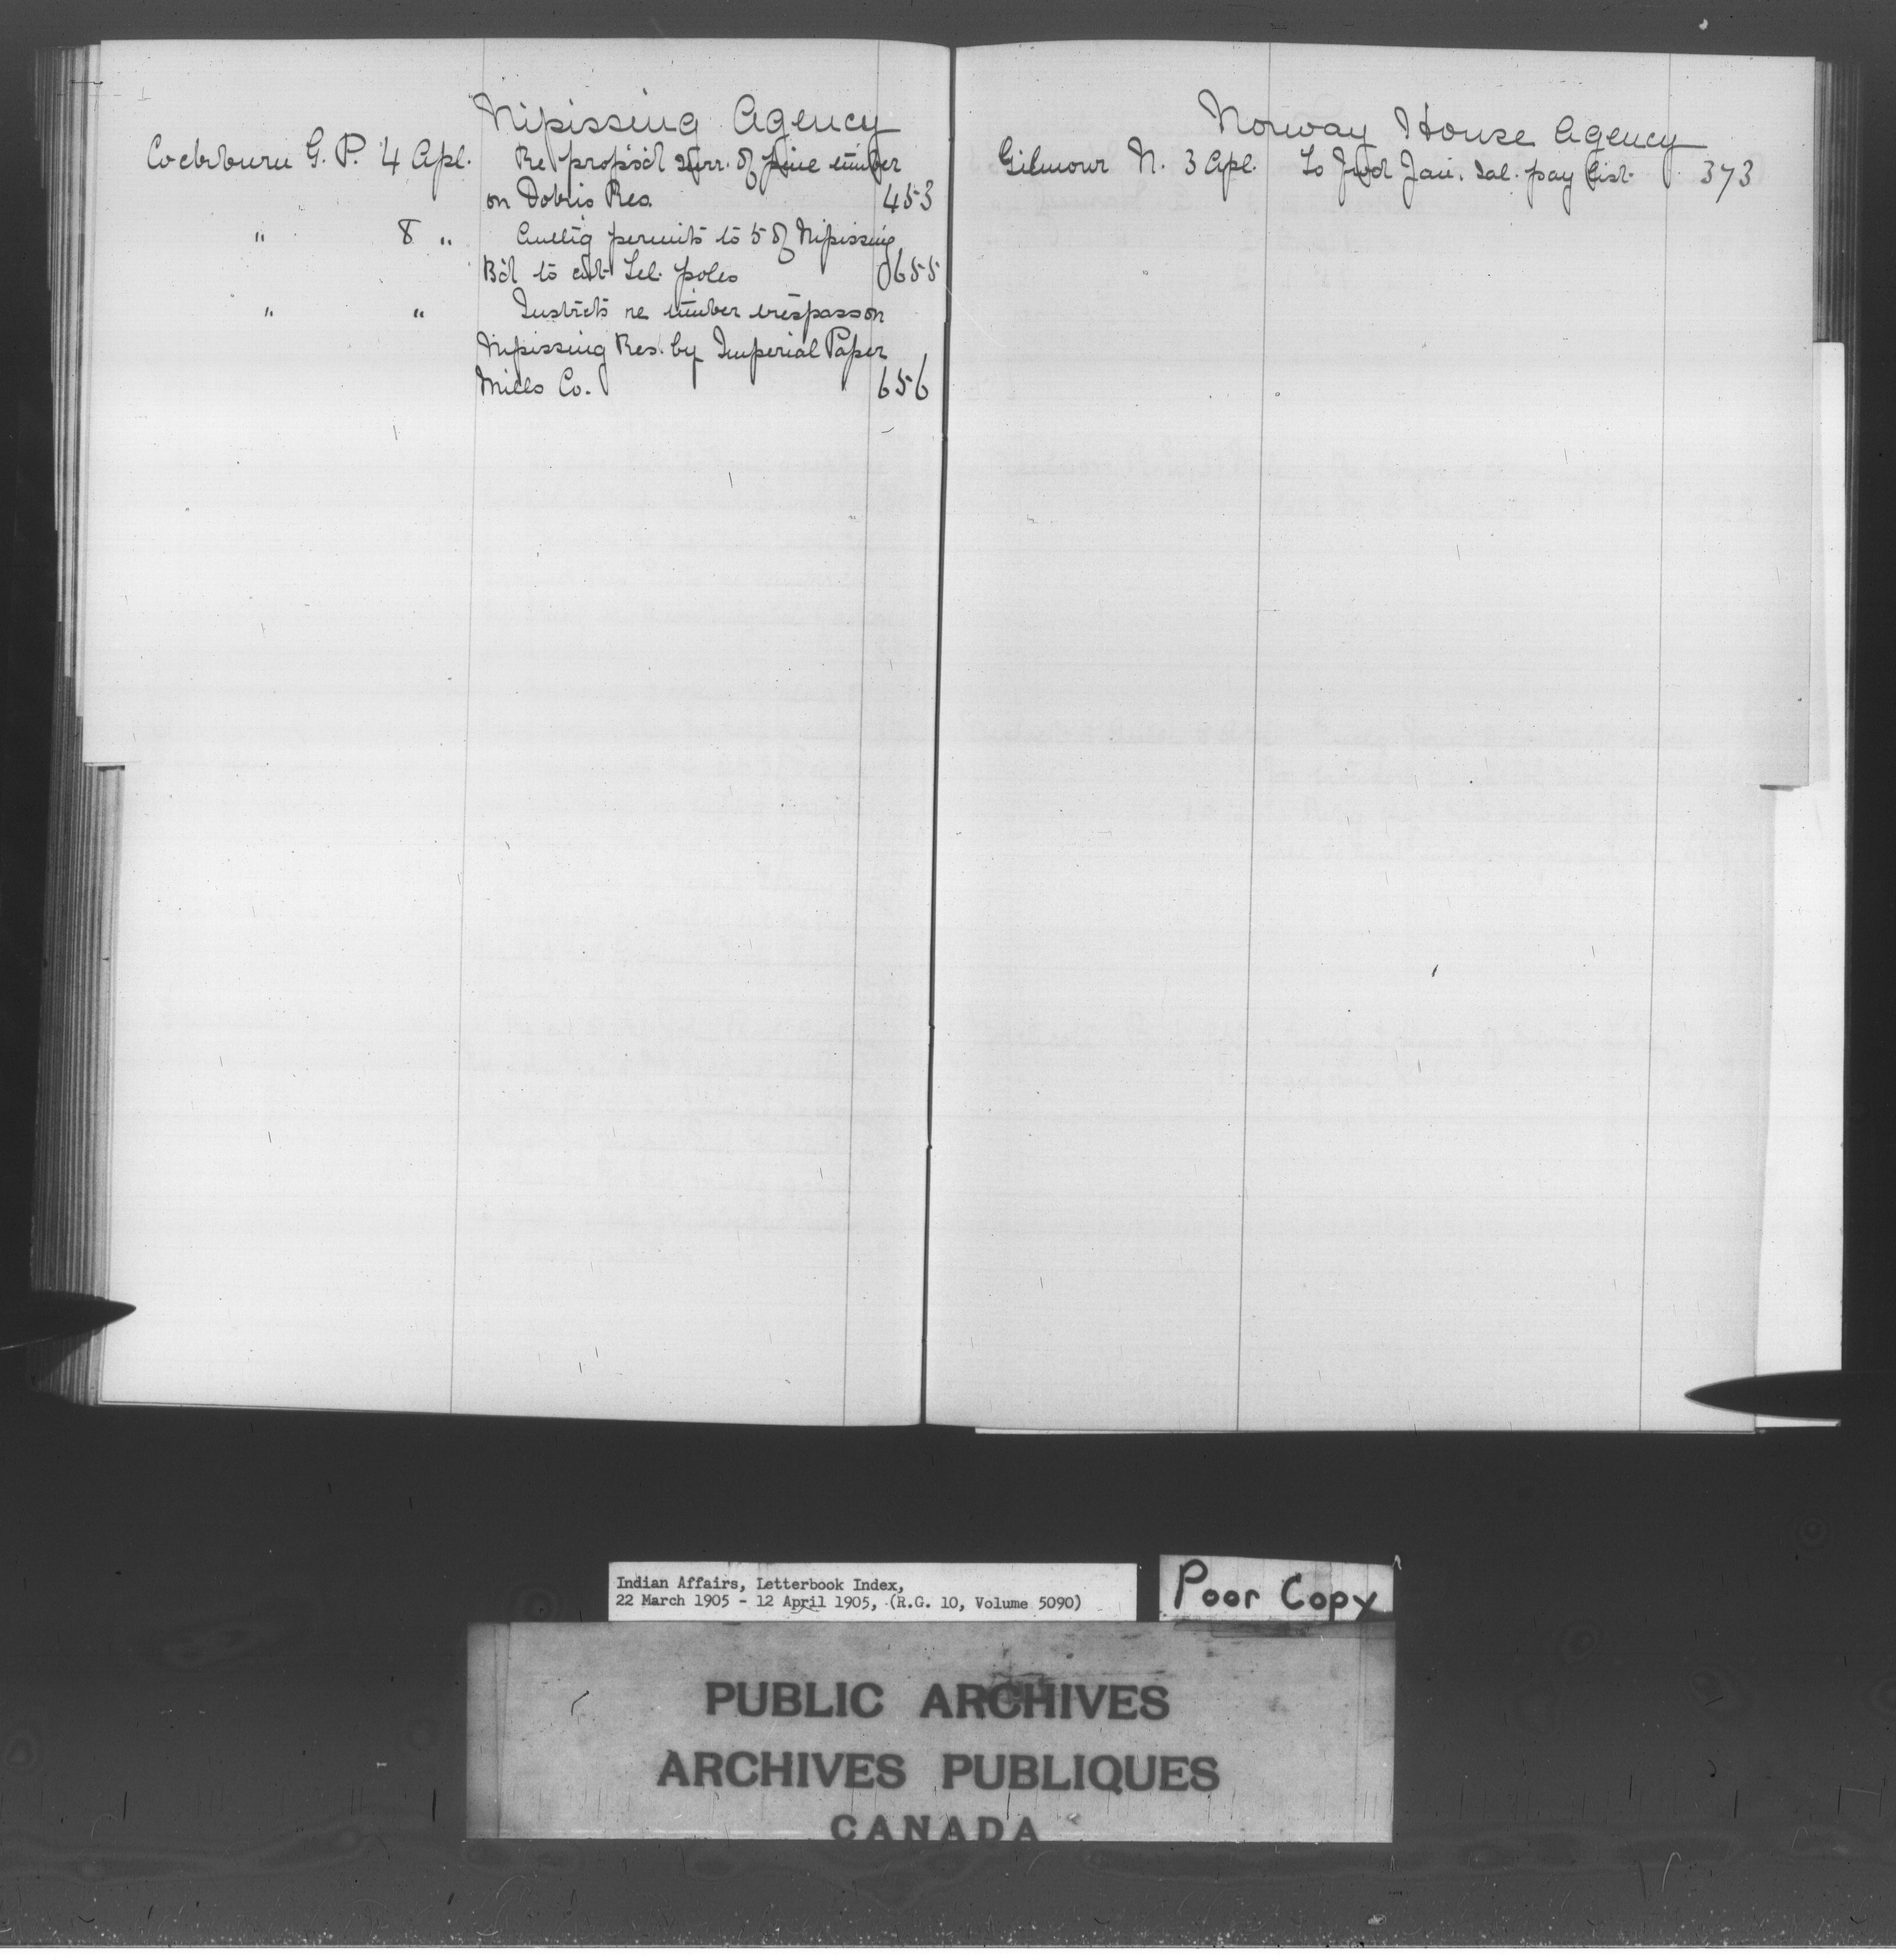 Nipissing Agency
Cockburn G. P. 4 Apl. Re propos'd surr. of pine timber
on Dokis Res. 453
" 8 " permits to 5 of Nipissing
B'd to cut tel. poles 655
" " Instricts re timber trespass on
Nipissing Res. by Imperial Paper
Mills Co. 656
Norway House Agency
Gilmour N. 3 Apl. To fwd Jan. sal. pay list. 373
Indian Affairs, Letterbook Index,
22 March 1905 - 12 April 1905, (R.G. 10, Volume 5090)
Poor Copy
PUBLIC ARCHIVES
ARCHIVES PUBLIQUES
CANADA